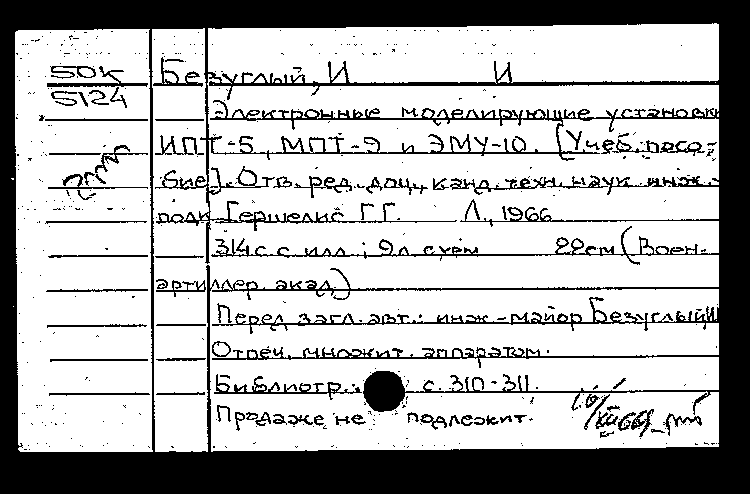 50К Безуглый, И И
5124
Электронные моделирующие установки
ИПТ-5, МПТ-9 и ЭМУ-10. [Учеб. посо-
бие]. Отв. ред. доц., канд. техн. наук инж.-
подп Гершелис Г.Г. Л., 1966
314 с с илл; 9 л схем 22см (Воен.
артиллер. акад)
Перед загл. авт.: инж-майор Безуглый И
Отпеч. множит. аппаратом.
Библиогр.: с. 310-311.
Продаже не подлежит.